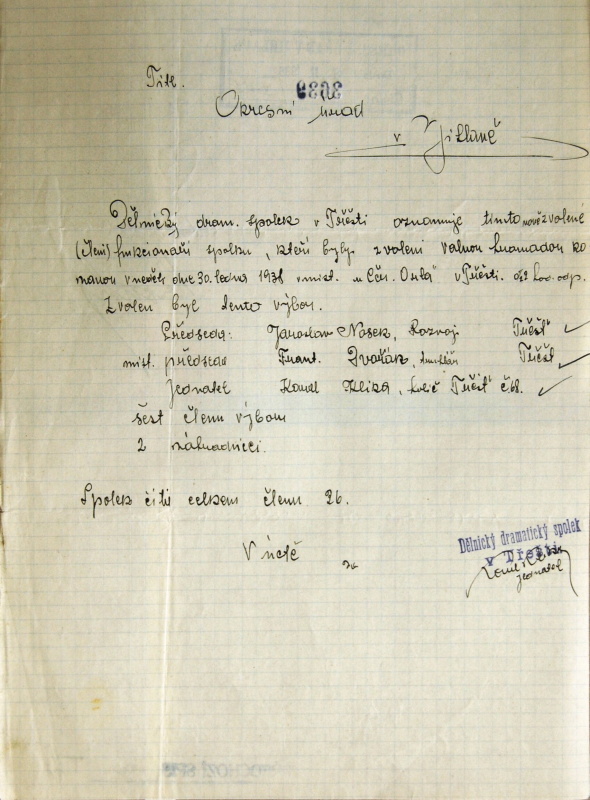 Titl.
Okresní úřad
v Jihlavě
Dělnický dram. spolek v Třešti oznamuje tímto nově zvolené
(členi) funkcionáři spolku, kteří byly zvoleni valnou hromadou ko
nanou v neděli dne 30. ledna 1938 v míst. u Čer. Orla" v Třešti. od 2 hod. odp.
Zvolen byl tento výbor.
Předseda: Jaroslav Nosek, Rozvoj Třešť
míst. předseda Frant. Dvořák, truhlář Třešť
Jednatel Karel Klika, holič Třešť č 68.
šest členu výboru
2 náhradníci.
Spolek čítá celkem členu 26.
V úctě
za
Dělnický dramatický spolek
v Třešti
Karel Klika
jednatel